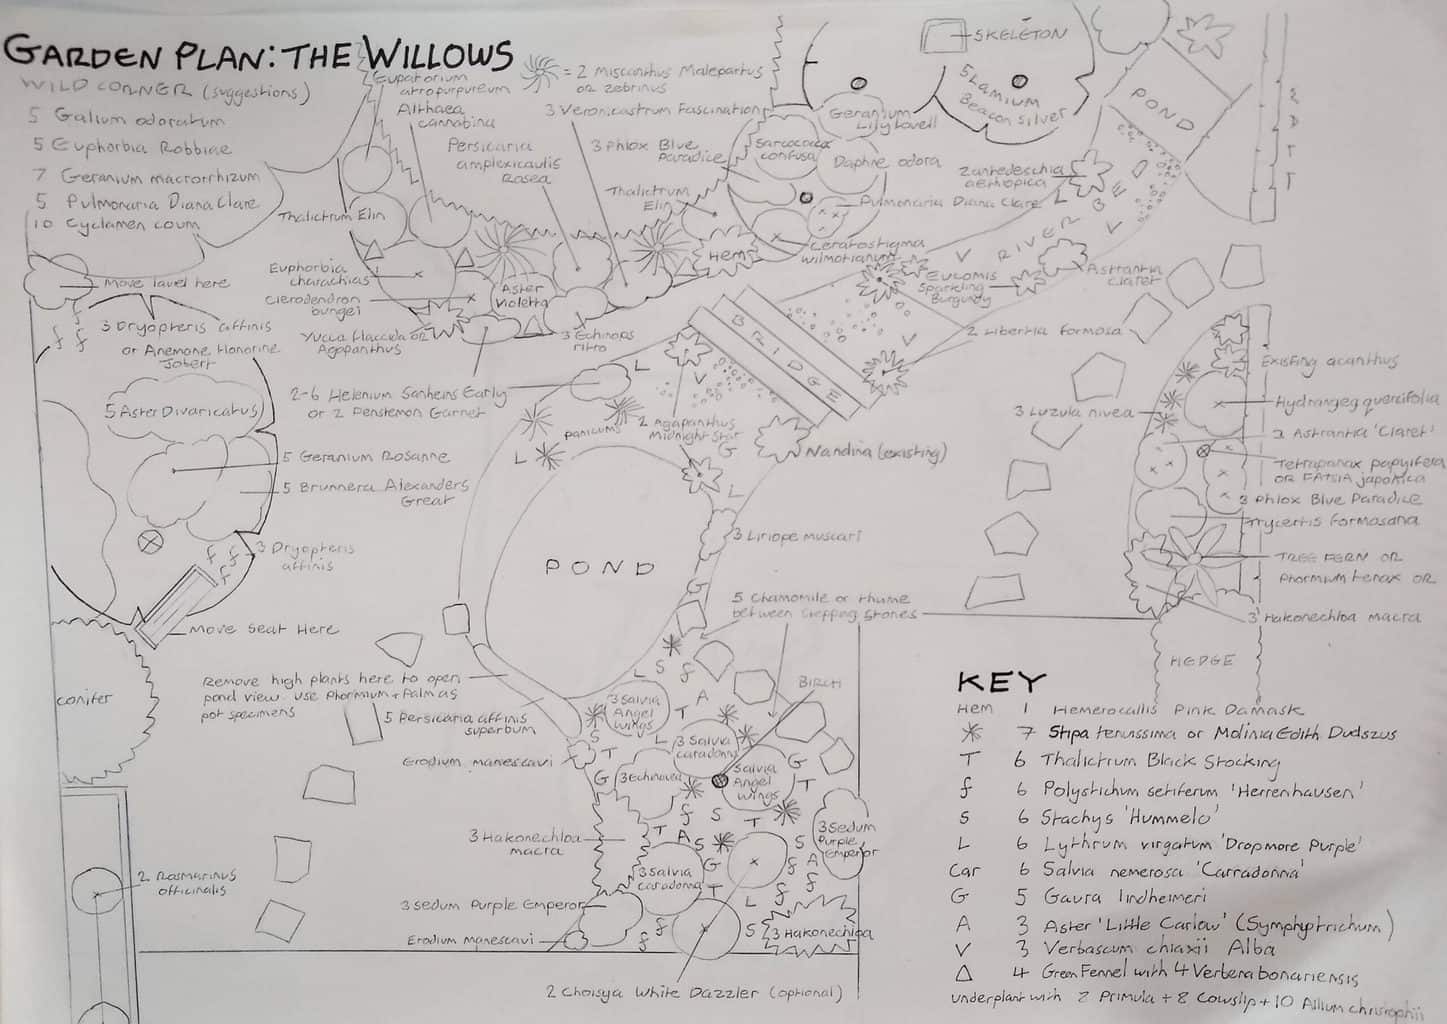 GARDEN PLAN: THE WILLOWS
WILD CORNER (suggestions)
5 Galium odoratum
5 Euphorbia Robbiae
7 Geranium macrorrhizum
5 Pulmonaria Diana Clare
10 Cyclamen coum
Eupatorium
atropurpureum
Althaea
cannabina
= 2 Miscanthus Malepartus
or zebrinus
3 Veronicastrum Fascination
Persicaria
amplexicaulis
Rosea
3 Phlox Blue
Paradice
Thalictrum
Elin
Thalictrum Elin
SKELETON
5 Lamium
Beacon Silver
Geranium
Lily Lovell
Sarcococca
confusa
Daphne odora
Pulmonaria Diana Clare
Ceratostigma
wilmotianum
Zantedeschia
aethiopica
POND
RIVER BED
L
V
V
Hem
Euphorbia
charachias
Clerodendron
bungei
Aster
Violetta
Yucca flaccida or
Agapanthus
3 Echinops
ritro
Eucomis
Sparkling
Burgundy
Astrantia
Claret
2 Libertia formosa
BRIDGE
V
V
L
Move lavel here
f f
f
3 Dryopteris affinis
or Anemone Honorine
Jobert
5 Aster Divaricatus
5 Geranium Rosanne
5 Brunnera Alexanders
Great
f f
f
3 Dryopteris
affinis
Move seat Here
2-6 Helenium Sanheins Early
or 2 Penstemon Garnet
panicums
2 Agapanthus
Midnight Star
L
G
L
Nandina (existing)
POND
3 Liriope muscari
G
5 Chamomile or thyme
between stepping stones
Existing acanthus
Hydrangeg quercifolia
3 Luzula nivea
2 Astrantia 'Claret'
Tetrapanax papyifera
OR FATSIA japonica
3 Phlox Blue Paradice
Trycertis formosana
TREE FERN OR
Phormium tenax OR
3 Hakonechloa macra
HEDGE
conifer
Remove high plants here to open
pond view. use Phormium + Palm as
pot specimens
5 Persicaria affinis
superbum
Erodium manescavi
BIRCH
L
S
f
A
T
3 Salvia
Angel
wings
S
T
L
3 Salvia
caradonna
G
3 Echinacea
Salvia
Angel
wings
G
T
f
S
T
T
A
S
3 Hakonechloa
macra
3 Salvia
caradonna
G
T
S
f
A
f
f
3 Sedum
Purple
Emperor
2 Rosmarinus
officinalis
3 Sedum Purple Emperor
Erodium manescavi
f
f
L
S
3 Hakonechloa
2 Choisya White Dazzler (optional)
KEY
Hem 1 Hemerocallis Pink Damask
7 Stipa tenuissima or Molinia Edith Dudszus
T 6 Thalictrum Black Stocking
f 6 Polystichum setiferum 'Herrenhausen'
S 6 Stachys 'Hummelo'
L 6 Lythrum virgatum 'Dropmore Purple'
Car 6 Salvia nemerosa 'Carradonna'
G 5 Gaura lindheimeri
A 3 Aster 'Little Carlow' (Symphyotrichum)
V 3 Verbascum chiaxii Alba
Δ 4 Green Fennel with 4 Verbena bonariensis
underplant with 2 Primula + 8 Cowslip + 10 Allium christophii